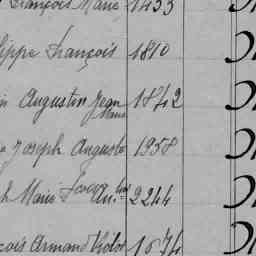 François Marie 1433
lippe François 1810
Augustin Jean Marie 1842
Joseph Auguste 1958
h Marie 2244
çois Armand 1674